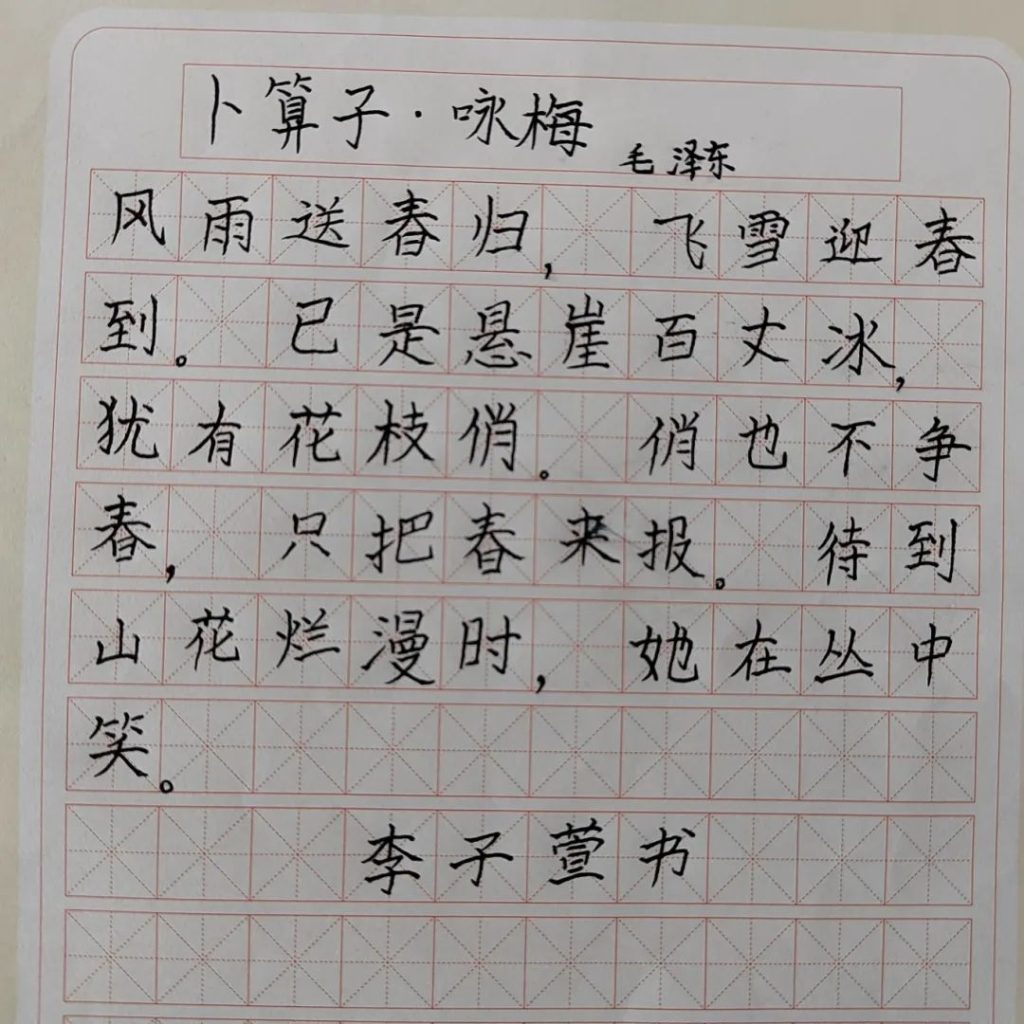 卜算子·咏梅
毛泽东
风雨送春归，飞雪迎春
到。已是悬崖百丈冰，
犹有花枝俏。俏也不争
春，只把春来报。待到
山花烂漫时，她在丛中
笑。
李子萱书